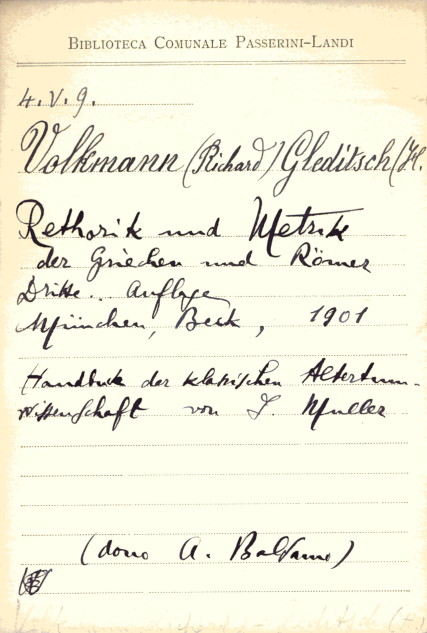 BIBLIOTECA COMUNALE PASSERINI-LANDI
4. V. 9.
Volkmann (Richard) Gleditsch (H.
Rethorik und Metrik
der Griechen und Römer
Dritte. Auflage
München, Beck, 1901
Handbuk der klassischen Altertum-
wissenschaft von J. Muller
(dono A. Balsamo)